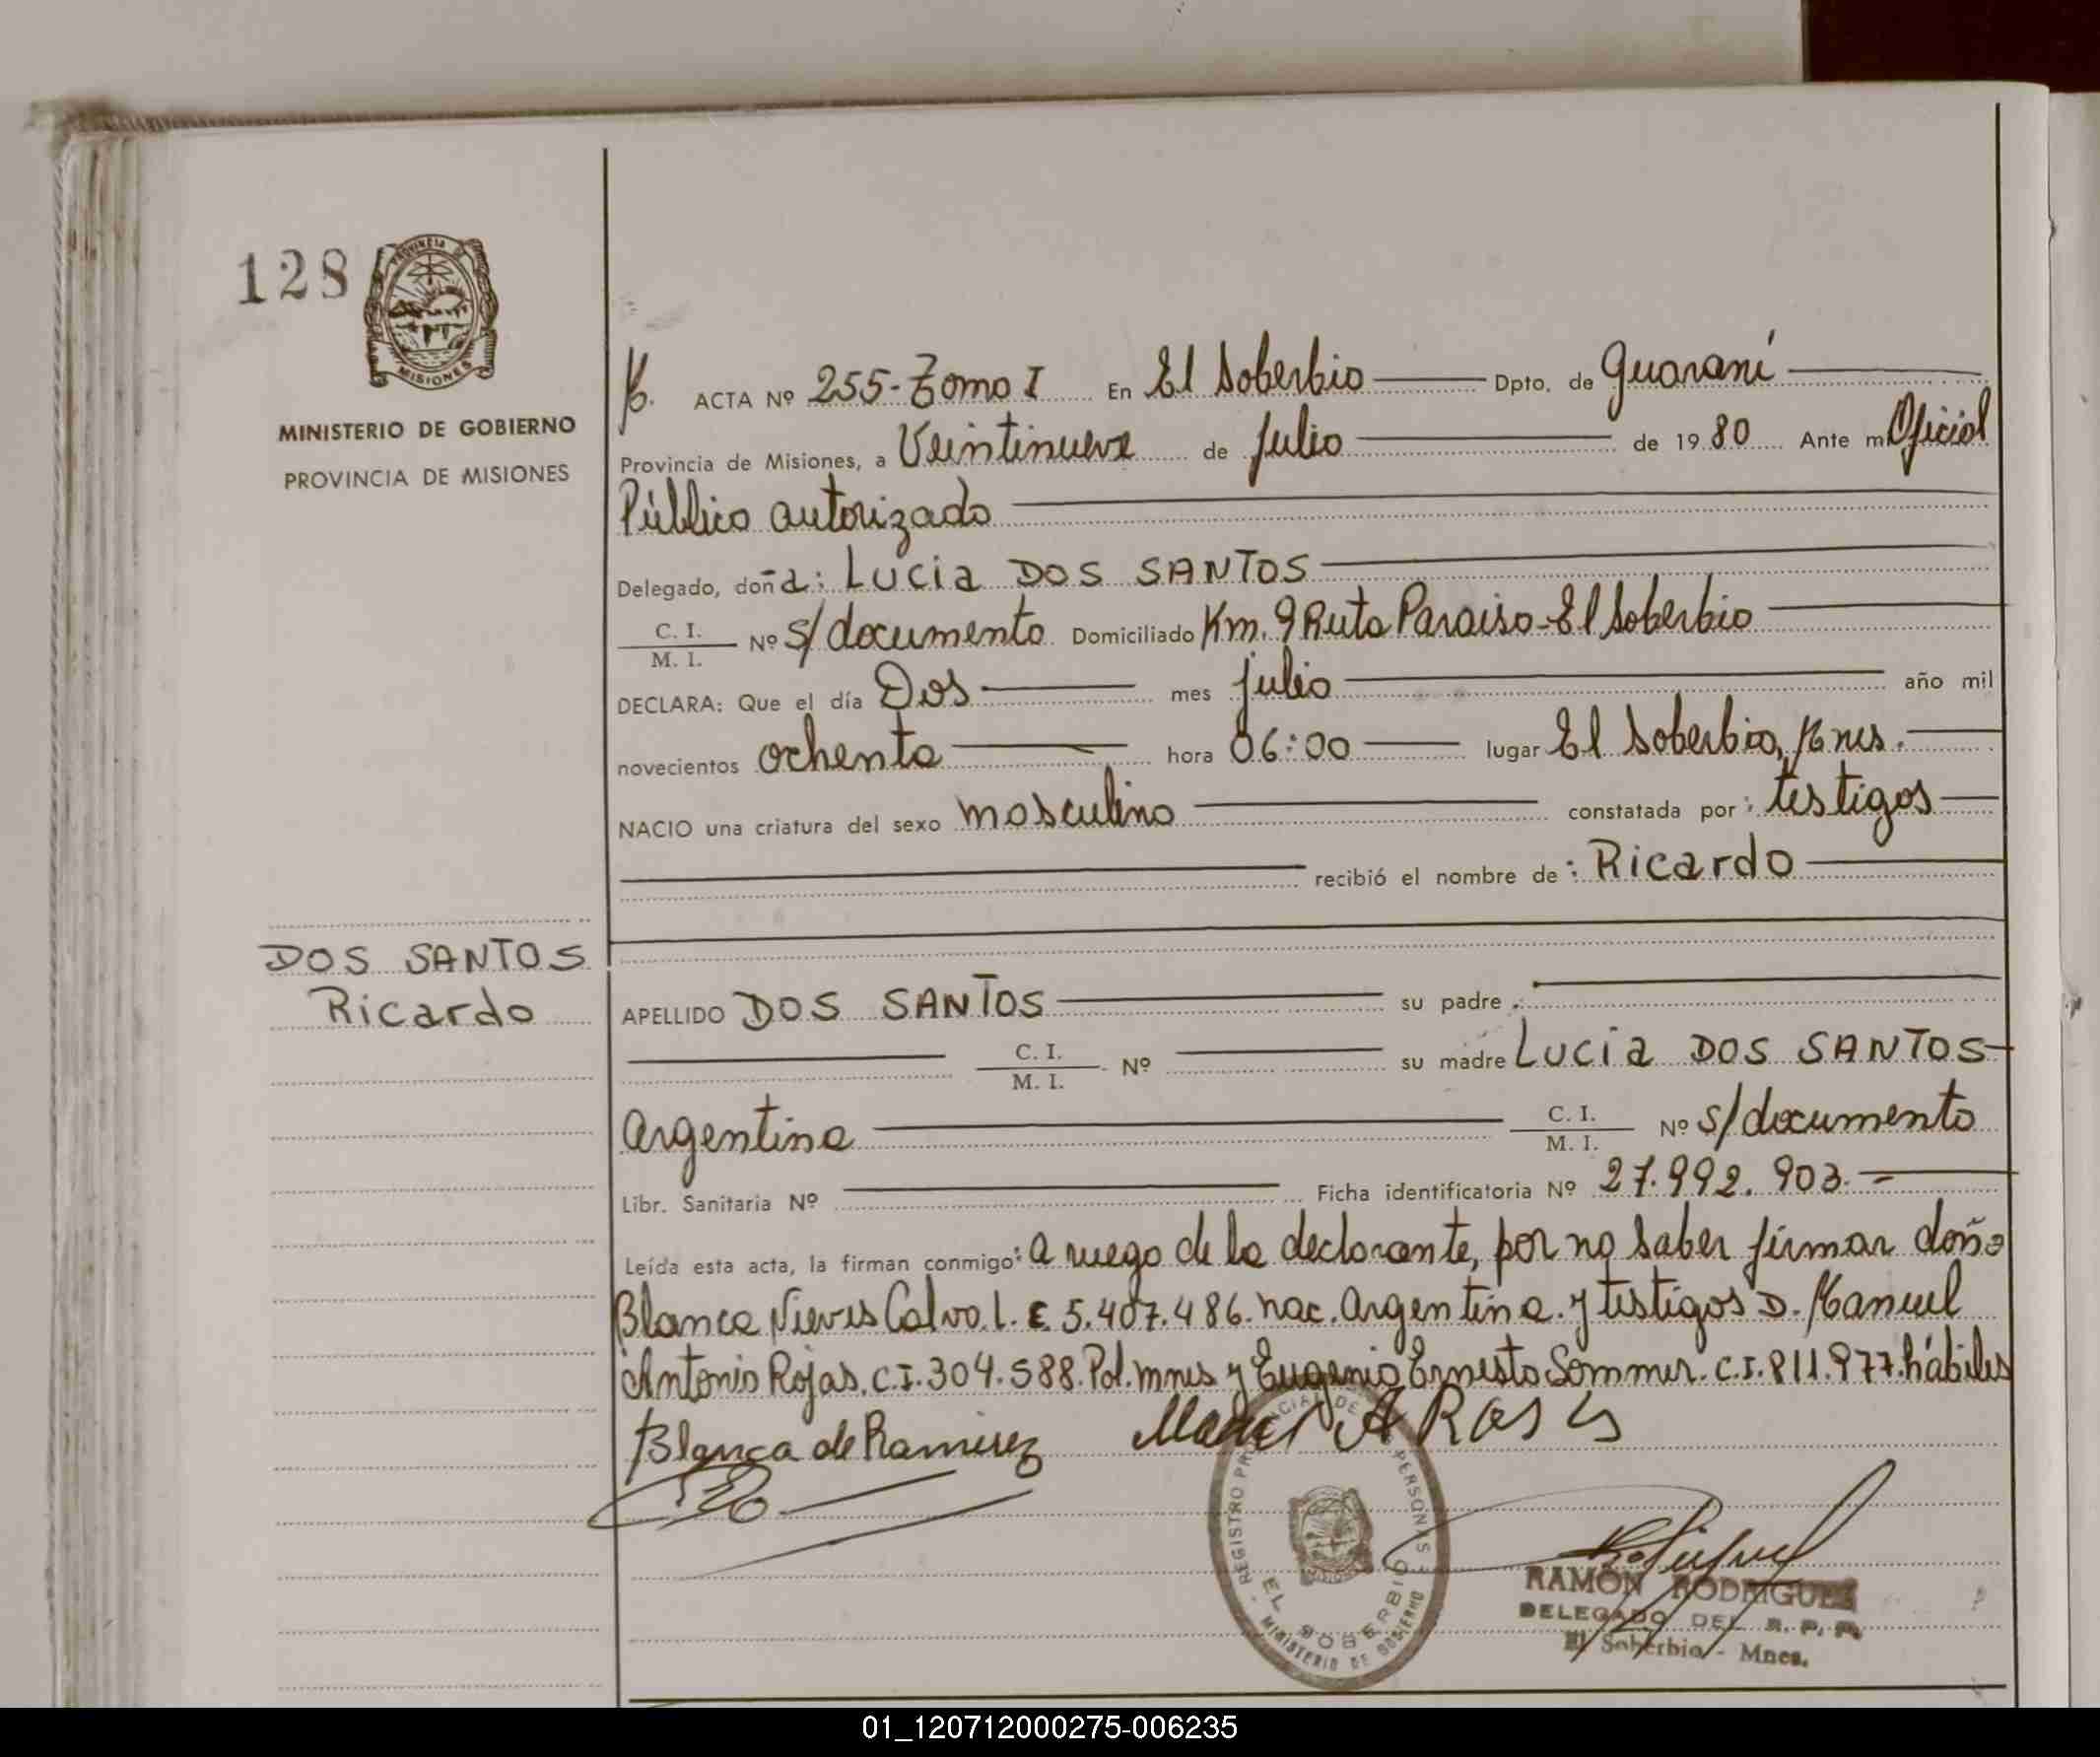 128
PROVINCIA DE
MISIONES
MINISTERIO DE GOBIERNO
PROVINCIA DE MISIONES
DOS SANTOS
Ricardo
ACTA Nº 255-Tomo I En El Soberbio Dpto. de Guaraní
Provincia de Misiones, a Veintinueve de julio de 1980 Ante mi Oficial
Público autorizado
Delegado, doña: Lucia DOS SANTOS
C. I.
M. I. Nº S/documento Domiciliado Km. 9 Ruta Paraiso-El Soberbio
DECLARA: Que el día Dos mes julio año mil
novecientos ochenta hora 06:00 lugar El Soberbio, Mnes.
NACIO una criatura del sexo masculino constatada por: testigos
recibió el nombre de: Ricardo
APELLIDO DOS SANTOS su padre
C. I.
M. I. Nº su madre Lucia DOS SANTOS
argentina C. I.
M. I. Nº S/documento
Libr. Sanitaria Nº Ficha identificatoria Nº 27.992.903.-
Leída esta acta, la firman conmigo: a ruego de la declarante, por no saber firmar doña
Blanca Nieves Calvo. L. E. 5.407.486. nac. Argentina. y testigos D. Manuel
Antonio Rojas. C.I. 304.588. Pol. mnes y Eugenio Ernesto Sommer. C.I. 811.977. hábiles
Blanca de Ramirez
REGISTRO PROVINCIAL DE PERSONAS
EL SOBERBIO
MINISTERIO DE GOBIERNO
RAMÓN RODRIGUEZ
DELEGADO DEL R. P. P.
El Soberbio - Mnes.
01_120712000275-006235